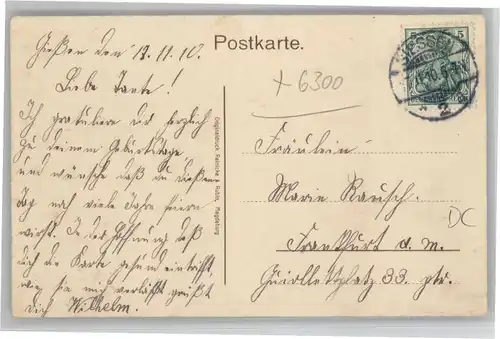 Gießen den 13.11.10.
Postkarte.
Liebe Tante!
Ich gratuliere dir herzlich
zu deinem Geburtstage
und wünsche daß du diesen
Tag noch viele Jahre feiern
wirst. In der Hoffnung daß
dich die Karte gesund eintrifft,
wie sie mich verläßt grüßt
dich Wilhelm.
Originaldruck Reinicke & Rubin, Magdeburg
5 5
GIESSEN
2
+6300
Fräulein
Marie Rausch.
DC
Frankfurt a. M.
Guiollettplatz 33. ptr.